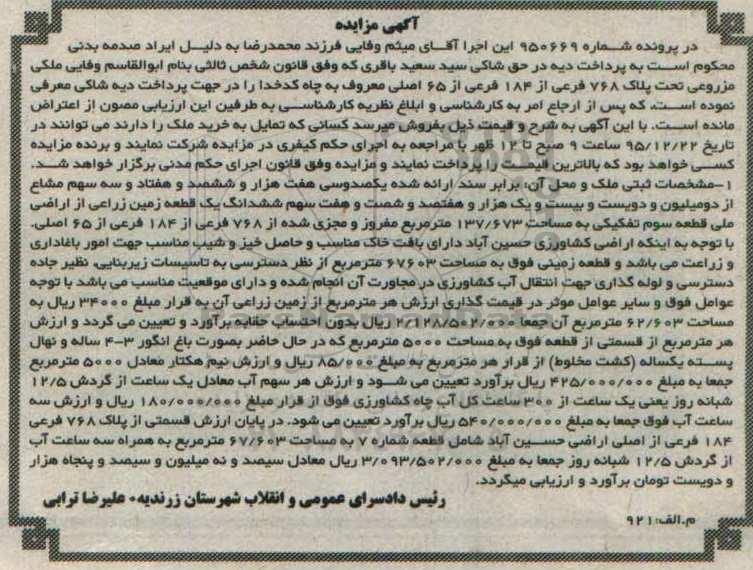 آگهی مزایده
در پرونده شماره ۹۵۰۶۶۹ این اجرا آقای میثم وفایی فرزند محمدرضا به دلیل ایراد صدمه بدنی
محکوم است به پرداخت دیه در حق شاکی سید سعید باقری که وفق قانون شخص ثالثی بنام ابوالقاسم وفایی ملکی
مزروعی تحت پلاک ۷۶۸ فرعی از ۱۸۴ فرعی از ۶۵ اصلی معروف به چاه کدخدا را در جهت پرداخت دیه شاکی معرفی
نموده است، که پس از ارجاع امر به کارشناسی و ابلاغ نظریه کارشناسی به طرفین این ارزیابی مصون از اعتراض
مانده است. با این آگهی به شرح و قیمت ذیل بفروش میرسد کسانی که تمایل به خرید ملک را دارند می توانند در
تاریخ ۹۵/۱۲/۲۲ ساعت ۹ صبح تا ۱۲ ظهر با مراجعه به اجرای حکم کیفری در مزایده شرکت نمایند و برنده مزایده
کسی خواهد بود که بالاترین قیمت را پرداخت نمایند و مزایده وفق قانون اجرای حکم مدنی برگزار خواهد شد.
۱-مشخصات ثبتی ملک و محل آن: برابر سند ارائه شده یکصدوسی هفت هزار و ششصد و هفتاد و سه سهم مشاع
از دومیلیون و دویست و بیست و یک هزار و هفتصد و شصت و هفت سهم ششدانگ یک قطعه زمین زراعی از اراضی
ملی قطعه سوم تفکیکی به مساحت ۱۳۷/۶۷۳ مترمربع مفروز و مجزی شده از ۷۶۸ فرعی از ۱۸۴ فرعی از ۶۵ اصلی.
با توجه به اینکه اراضی کشاورزی حسین آباد دارای بافت خاک مناسب و حاصل خیز و شیب مناسب جهت امور باغاداری
و زراعت می باشد و قطعه زمینی فوق به مساحت ۶۷۶۰۳ مترمربع از نظر دسترسی به تاسیسات زیربنایی، نظیر جاده
دسترسی و لوله گذاری جهت انتقال آب کشاورزی در مجاورت آن انجام شده و دارای موقعیت مناسب می باشد با توجه
عوامل فوق و سایر عوامل موثر در قیمت گذاری ارزش هر مترمربع از زمین زراعی آن به قرار مبلغ ۳۴۰۰۰ ریال به
مساحت ۶۲/۶۰۳ مترمربع آن جمعا ۲/۱۲۸/۵۰۲/۰۰۰ ریال بدون احتساب حقابه برآورد و تعیین می گردد و ارزش
هر مترمربع از قسمتی از قطعه فوق به مساحت ۵۰۰۰ مترمربع که در حال حاضر بصورت باغ انگور ۳-۴ ساله و نهال
پسته یکساله (کشت مخلوط) از قرار هر مترمربع به مبلغ ۸۵/۰۰۰ ریال و ارزش نیم هکتار معادل ۵۰۰۰ مترمربع
جمعا به مبلغ ۴۲۵/۰۰۰/۰۰۰ ریال برآورد تعیین می شود و ارزش هر سهم آب معادل یک ساعت از گردش ۱۲/۵
شبانه روز یعنی یک ساعت از ۳۰۰ ساعت کل آب چاه کشاورزی فوق از قرار مبلغ ۱۸۰/۰۰۰/۰۰۰ ریال و ارزش سه
ساعت آب فوق جمعا به مبلغ ۵۴۰/۰۰۰/۰۰۰ ریال برآورد تعیین می شود. در پایان ارزش قسمتی از پلاک ۷۶۸ فرعی
۱۸۴ فرعی از اصلی اراضی حسین آباد شامل قطعه شماره ۷ به مساحت ۶۷/۶۰۳ مترمربع به همراه سه ساعت آب
از گردش ۱۲/۵ شبانه روز جمعا به مبلغ ۳/۰۹۳/۵۰۲/۰۰۰ ریال معادل سیصد و نه میلیون و سیصد و پنجاه هزار
و دویست تومان برآورد و ارزیابی میگردد.
رئیس دادسرای عمومی و انقلاب شهرستان زرندیه- علیرضا ترابی
م.الف: ۹۲۱